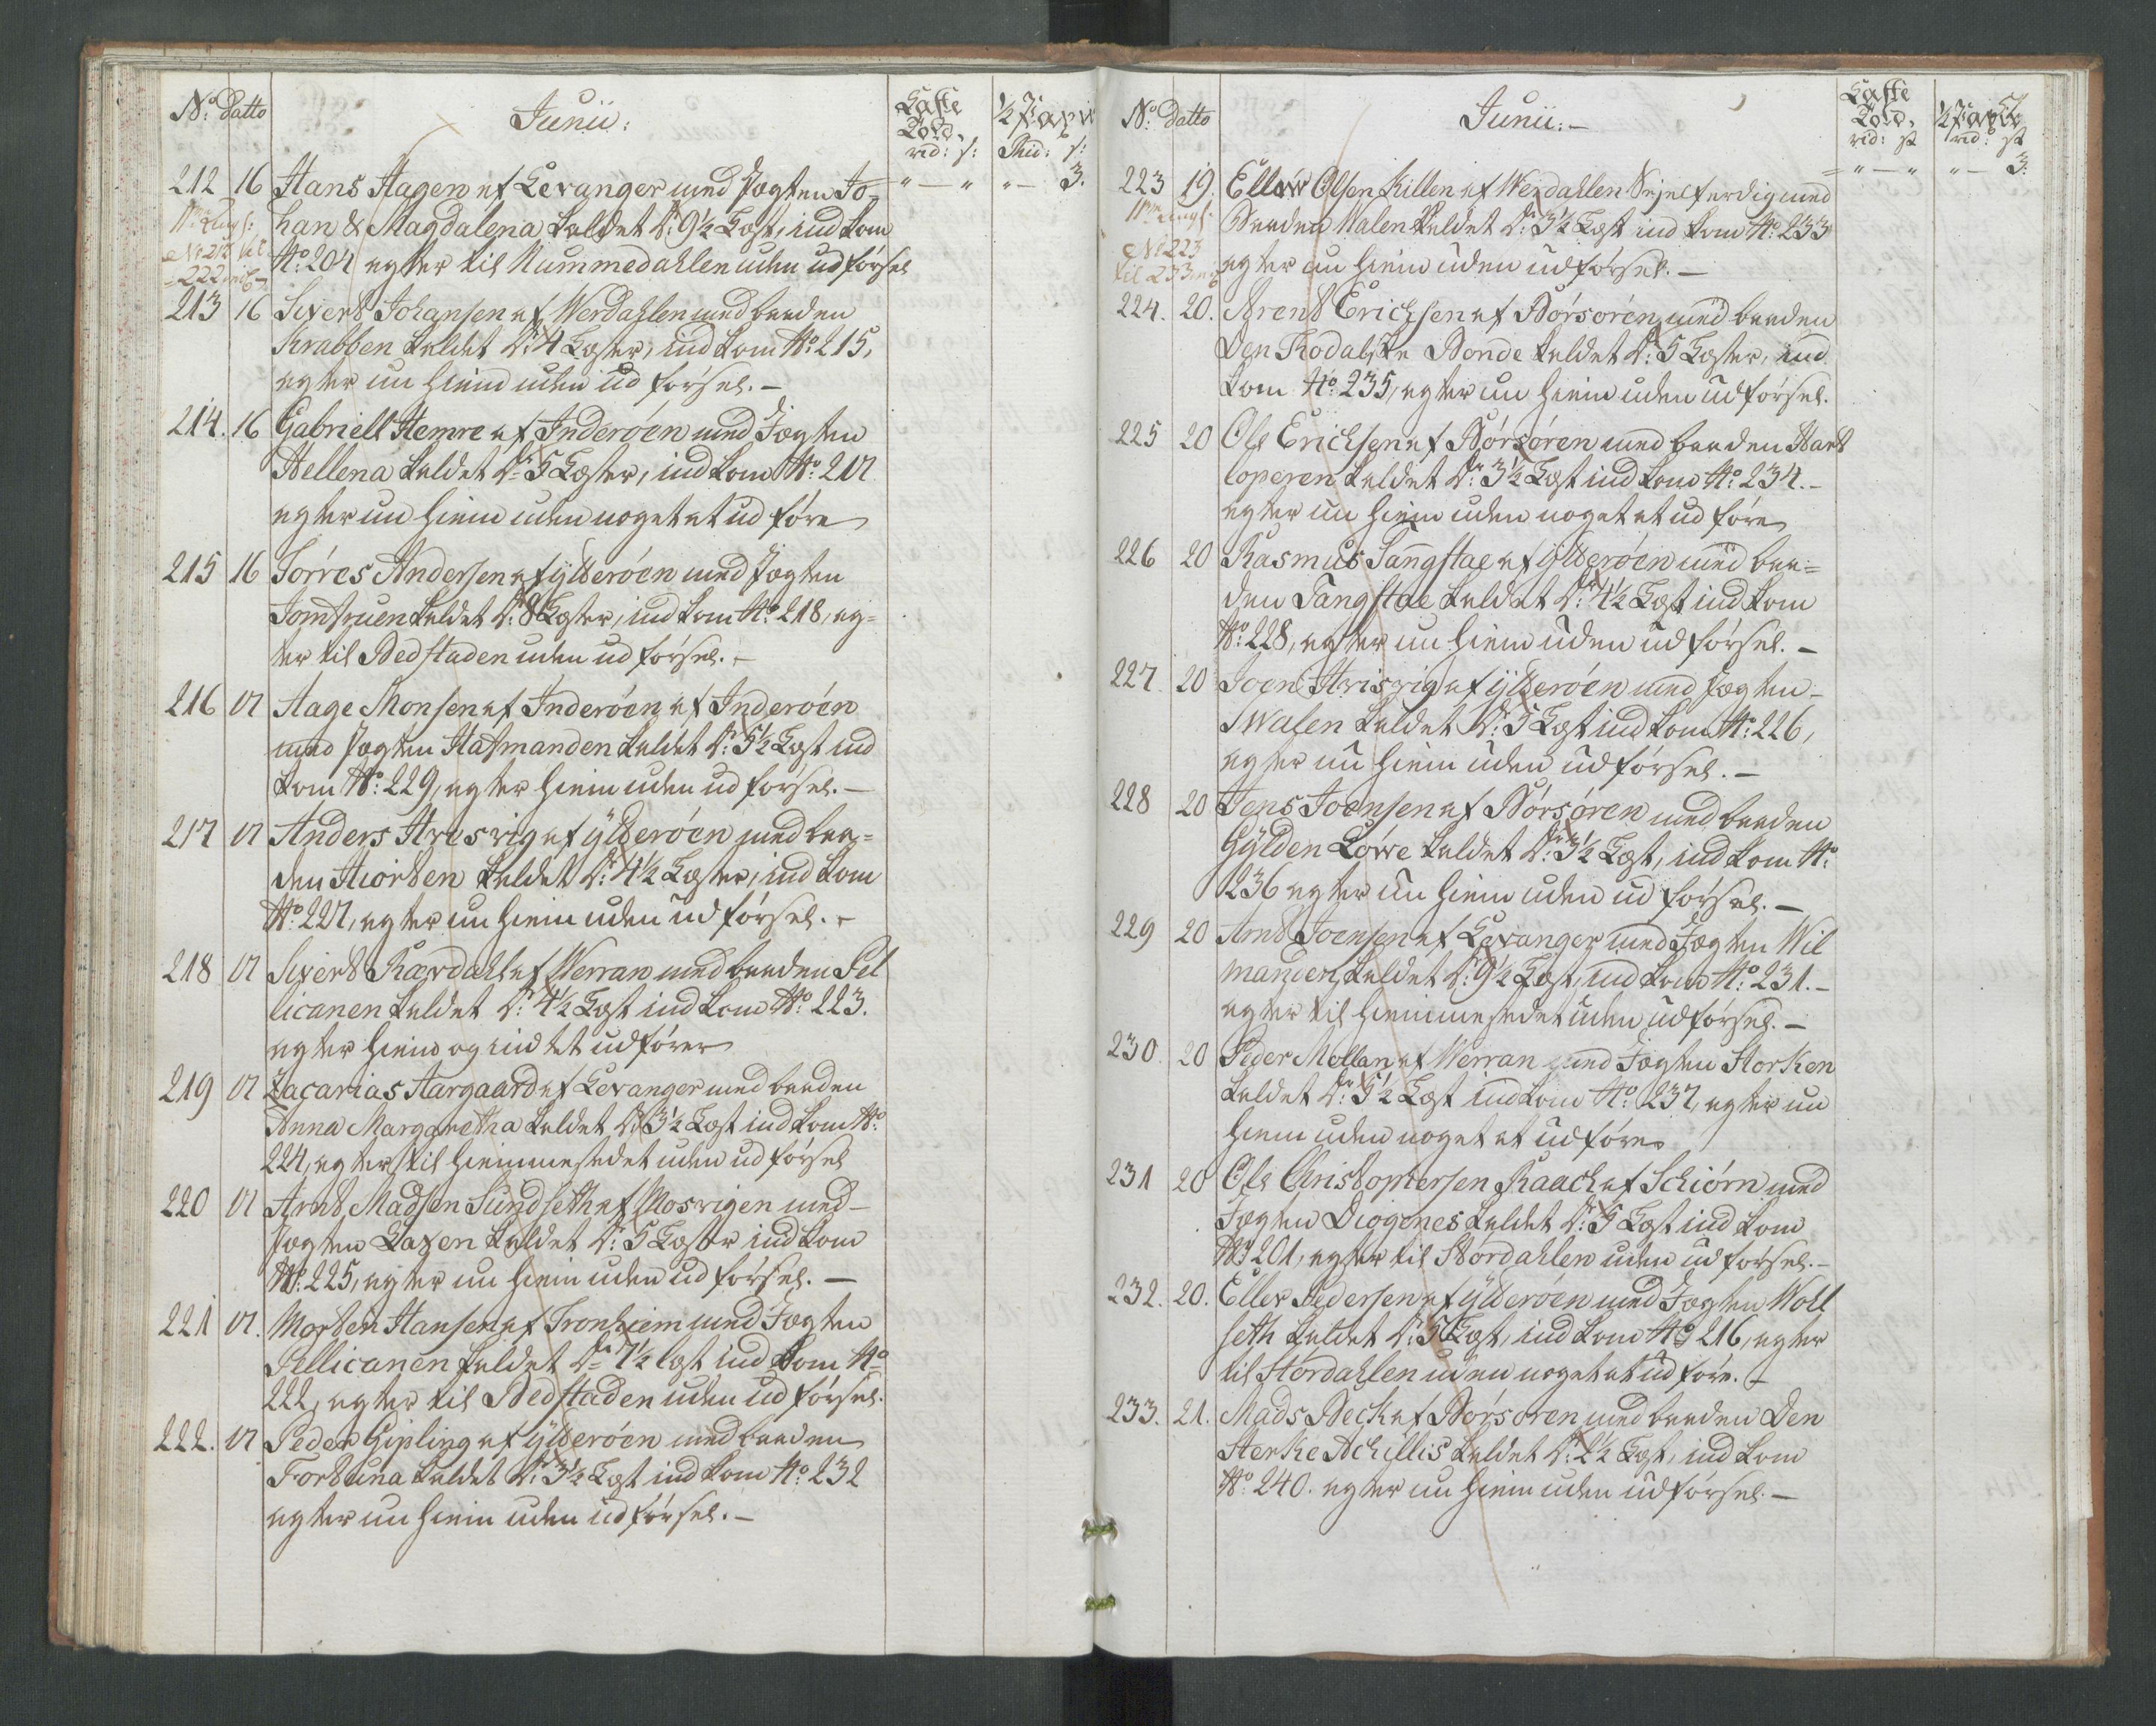 No: Datto Junii: Laste Told. 1/2 Fart
rd: s: Rd: s:
212 16 Hans Hagen af Levanger med Jagten Jo- " — " " — 3.
han & Magdalena keldet Dr: 9 1/2 Lest, ind kom
No: 204 agter til Nummedahlen uden udførsel
No 212 til
222
213 16 Sivert Johansen af Werdahlen med baaden
Krabben keldet Dr: 4 Lester, ind kom No: 215,
agter nu hiem uden udførsel. —
214. 16 Gabriell Hemre af Inderøen med Jagten
Hellena keldet Dr: 5 Lester, ind kom No: 217
agter nu hiem uden noget at udføre
215 16 Sørres Andersen af ytterøen med Jagten
Jomfruen keldet Dr: 8 Lester, ind kom No: 218, ag-
ter til Bedstaden uden udførsel. —
216 17 Aage Monsen af Inderøen af Inderøen
med Jagten Hafmanden keldet Dr: 5 1/2 Lest ind
kom No: 229, agter hiem uden udførsel. —
217 17 Anders Hresvig af ytterøen med baa-
den Hiorten keldet Dr: 4 1/2 Lester, ind kom
No: 227, agter nu hiem uden udførsel. —
218 17 Sivert Rærdahl af Werran med baaden Pel
licanen keldet Dr: 4 1/2 Lest ind kom No: 223.
agter hiem og intet udfører
219 17 Zacarias Aargaard af Levanger med baaden
Anna Margaretha keldet Dr: 3 1/2 Lest ind kom No:
224, agter til hiemmestedet uden udførsel
220 17 Arnt Madsen Sundseth af Mosvigen med —
Jagten Laxen keldet Dr: 5 Lester ind kom
No: 225, agter nu hiem uden udførsel. —
221 17. Morten Hansen af Tronhiem med Jagten
Pellicanen keldet Dr: 7 1/2 lest ind kom No
222, agter til Bedstaden uden udførsel.
222. 17 Peder Gipling af ytterøen med baaden
Fortuna keldet Dr: 3 1/2 Lest ind kom No: 232
agter nu hiem uden udførsel. —
No: Datto Junii: — Laste Told. 1/2 Fart
rd: s: rd: s:
223 19. Ellev Olsen Killen af Werdahlen Sejelferdig med " — " " — 3.
Baaden Walen keldet Dr: 3 1/2 Lest ind kom No: 233
No 223
til 233
agter nu hiem uden udførsel. —
224. 20. Arent Erichsen af Børsøren med baaden
Den Rodalske Bonde keldet Dr: 5 Lester, ind
kom No: 235, agter nu hiem uden udførsel.
225 20 Ole Erichsen af Børsøren med baaden Hart
loperen keldet Dr: 3 1/2 Lest ind kom No: 234. —
agter nu hiem uden noget at udføre
226 20 Rasmus Tangstae af ytterøen med baa=
den Tangstae keldet Dr: 4 1/2 Lest ind kom
No: 228, agter nu hiem uden udførsel. —
227. 20 Joen Hresvig af ytterøen med Jagten —
Swalen keldet Dr: 5 Lest ind kom No: 226,
agter nu hiem uden udførsel. —
228 20 Jens Joensen af Børsøren med baaden
Gylden Løwe keldet Dr: 3 1/2 Lest, ind kom No:
236 agter nu hiem uden udførsel. —
229 20 Arnt Joensen af Levanger med Jagten Wil
manden keldet Dr: 9 1/2 Lest, ind kom No: 231. —
agter til hiemmestedet uden udførsel. —
230. 20 Peder Mollan af Werran med Jagten Storken
keldet Dr: 5 1/2 Lest ind kom No: 237, agter nu
hiem uden noget at udføre
231 20 Ole Christophersen Raach af Schiørn med
Jagten Diogenes keldet Dr: 5 Lest ind kom
No: 201, agter til Stordahlen uden udførsel. —
232. 20. Eller Pedersen af ytterøen med Jagten Woll
seth keldet Dr: 5 Lest, ind kom No: 216, agter
til Stordahlen uden noget at udføre. —
233. 21. Mads Beck af Børsoren med baaden Den
Sterke Achillis keldet Dr: 2 1/2 Lest, ind kom
No: 240. agter nu hiem uden udførsel. —